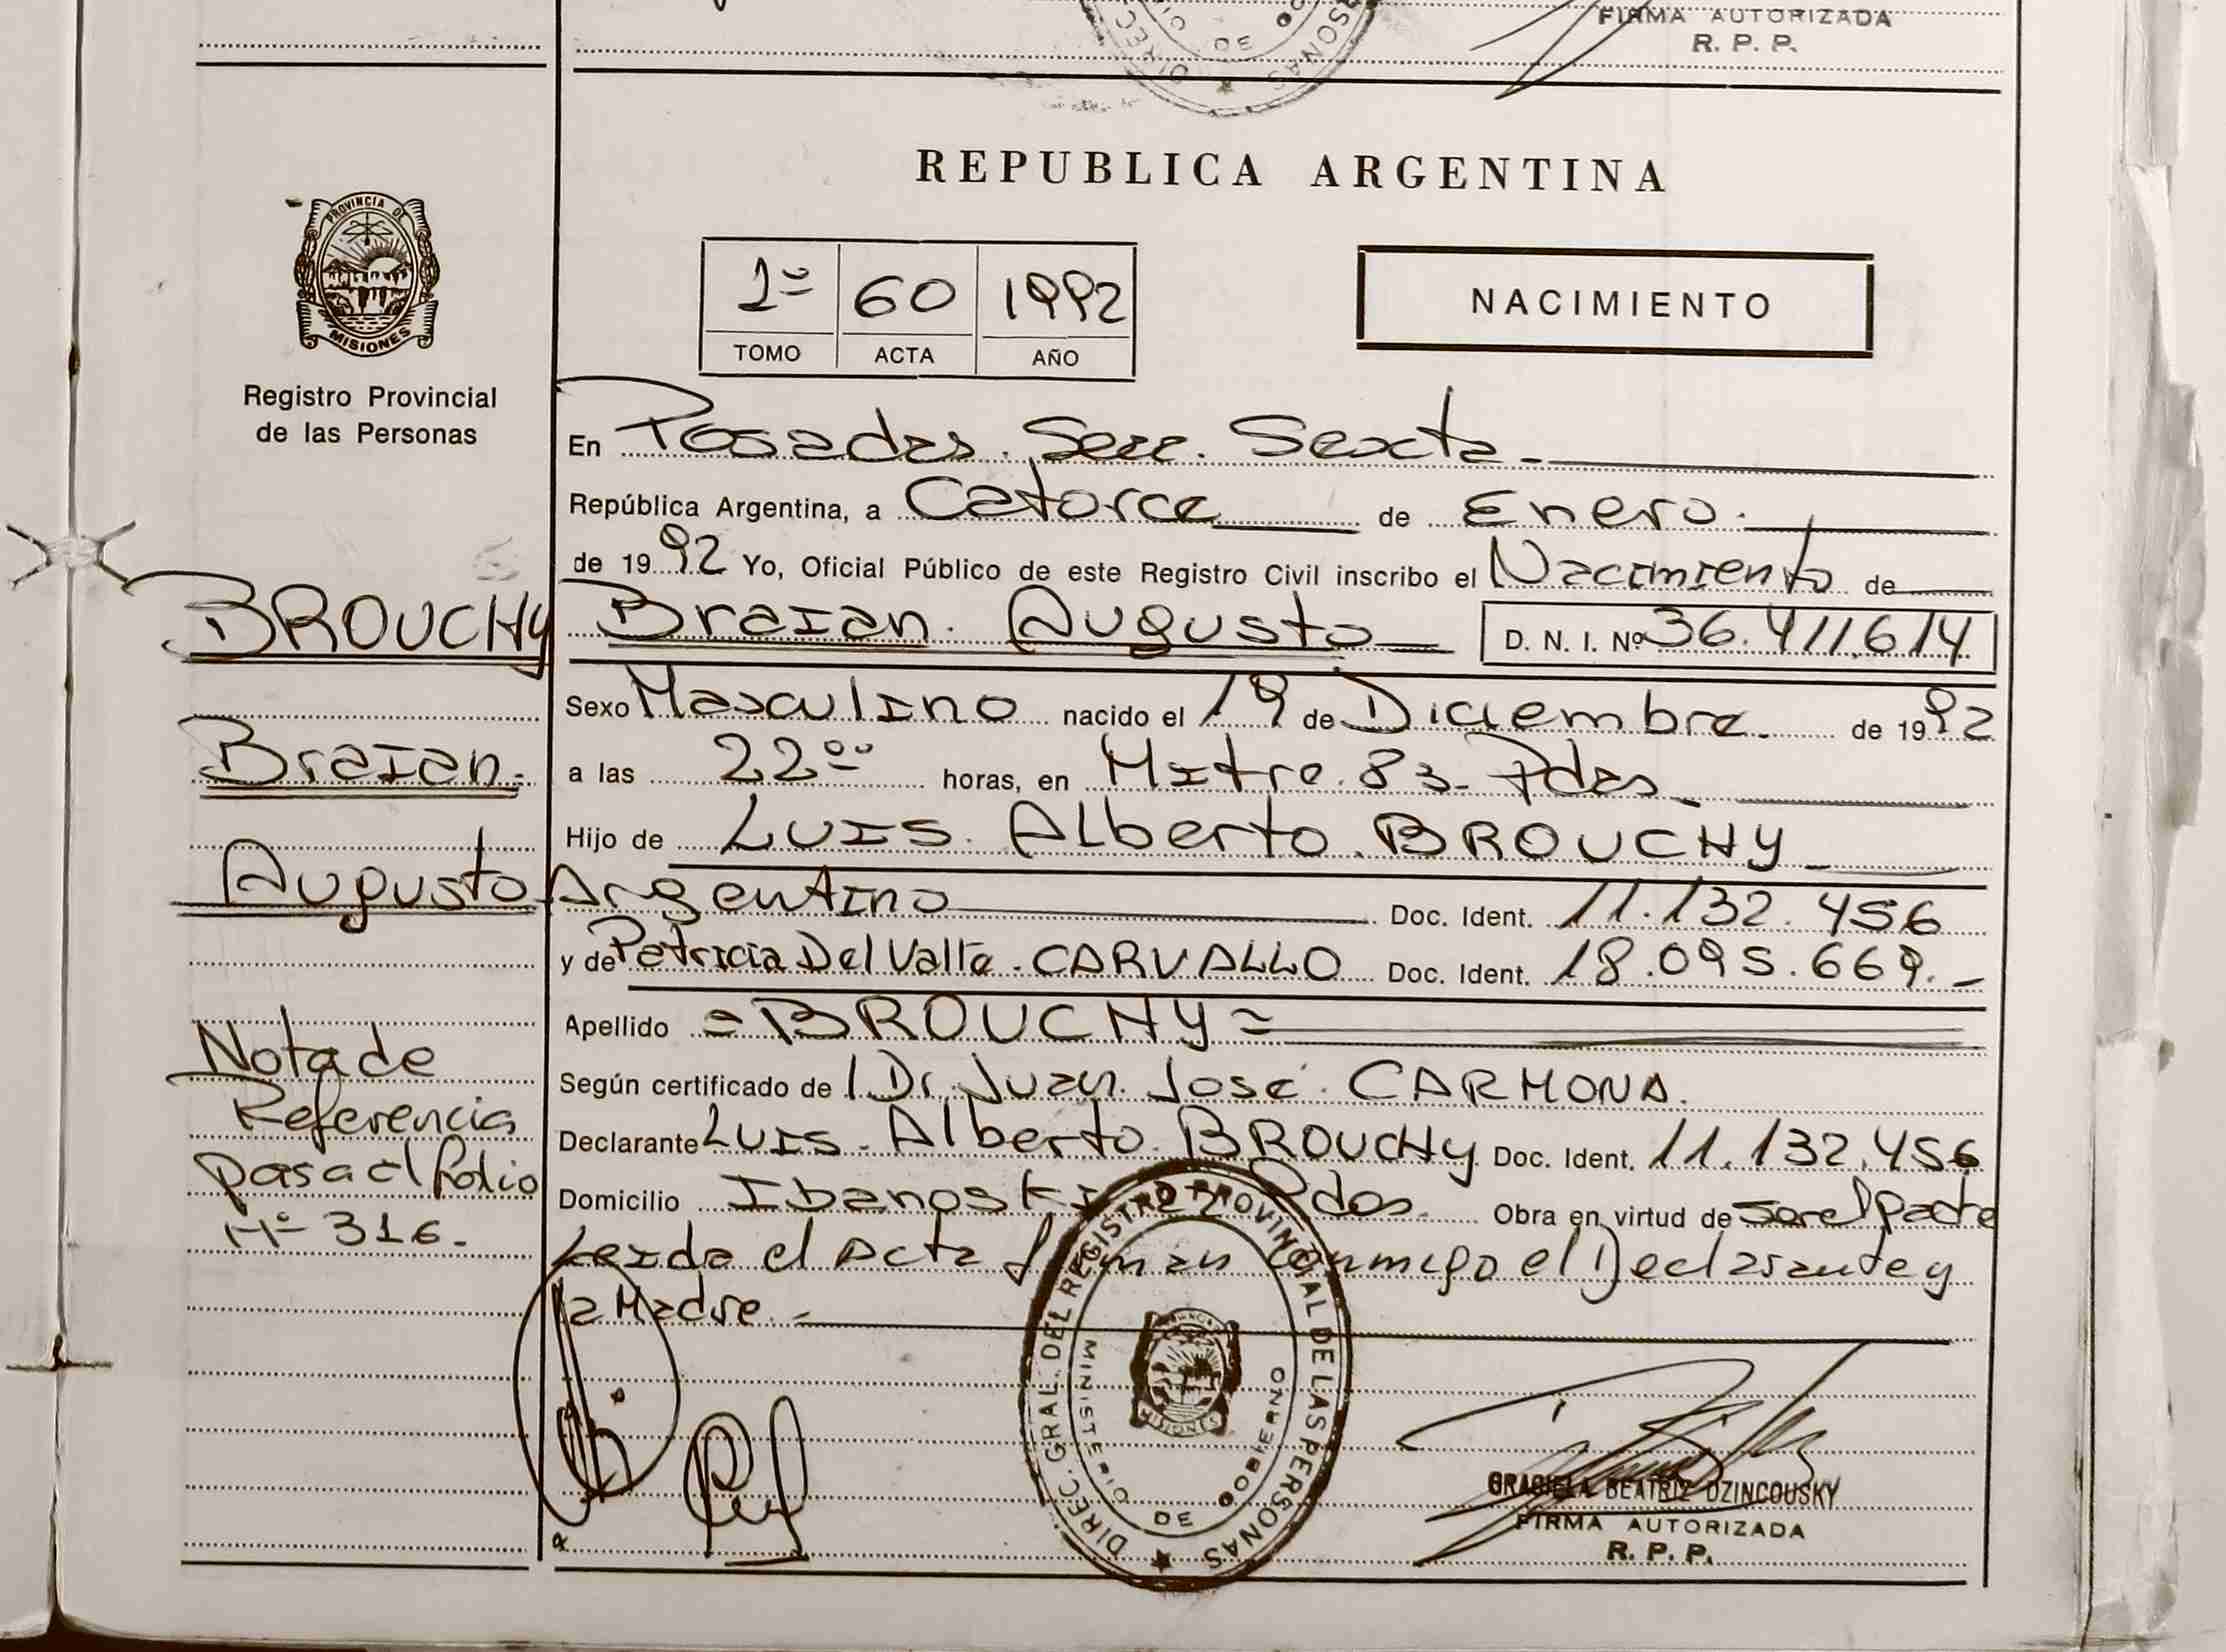 FIRMA AUTORIZADA
R. P. P.
REPUBLICA ARGENTINA
PROVINCIA DE
MISIONES
Registro Provincial
de las Personas
1º 60 1992
TOMO ACTA AÑO
NACIMIENTO
En Posadas. Secc. Sexta
República Argentina, a Catorce de Enero.
de 1992 Yo, Oficial Público de este Registro Civil inscribo el Nacimiento de
BROUCHY Braian. Augusto D. N. I. Nº 36.411.614
Sexo Masculino nacido el 19 de Diciembre. de 1992
Braian. a las 22ºº horas, en Mitre. 83. Pdas
Hijo de Luis. Alberto. BROUCHY
Augusto Argentino Doc. Ident. 11.132.456
y de Patricia Del Valle. CARVALLO Doc. Ident. 18.095.669.-
Apellido =BROUCHY=
Nota de
Referencia
pasa al folio
Nº 316.
Según certificado de l Dr. Juan. José. CARMONA.
Declarante Luis. Alberto. BROUCHY Doc. Ident. 11.132.456
Domicilio Pdas. Obra en virtud de ser el padre
Leida el Acta firman conmigo el Declarante y
la Madre.-
DIREC. GRAL. DEL REGISTRO PROVINCIAL DE LAS PERSONAS
MINISTERIO DE GOBIERNO
MISIONES
GRACIELA BEATRIZ DZINCOUSKY
FIRMA AUTORIZADA
R. P. P.